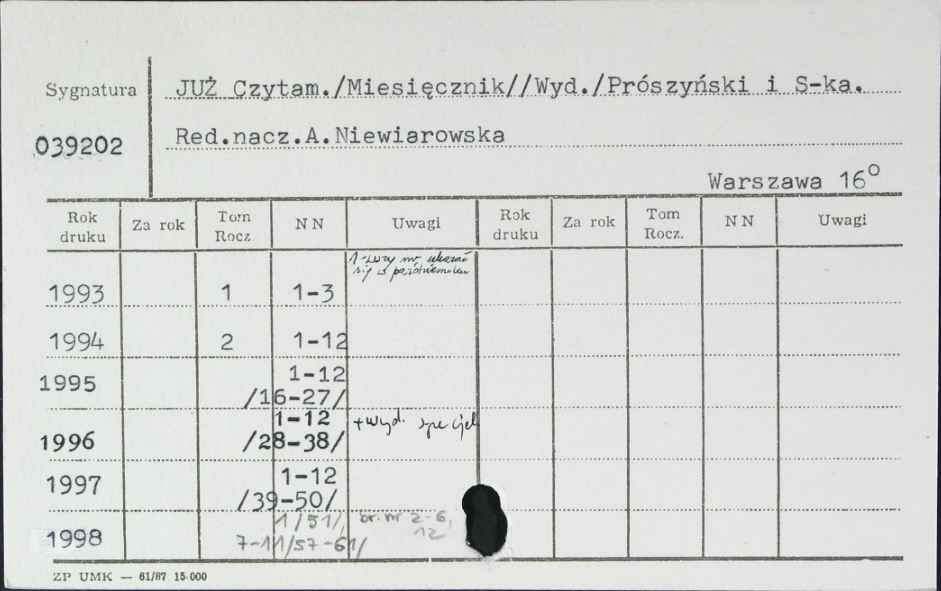 Sygnatura
JUŻ Czytam./Miesięcznik//Wyd./Prószyński i S-ka.
039202
Red.nacz.A.Niewiarowska
Warszawa 16°
Rok druku Za rok Tom Rocz NN Uwagi Rok druku Za rok Tom Rocz. NN Uwagi
1-szy nr ukazał
się w październiku
1993 1 1-3
1994 2 1-12
1995 1-12
/16-27/
1996 1-12 +wyd. specjal
/28-38/
1997 1-12
/39-50/
1/51/, br. nr 2-6,
12
1998 7-11/57-61/
ZP UMK — 61/87 15·000